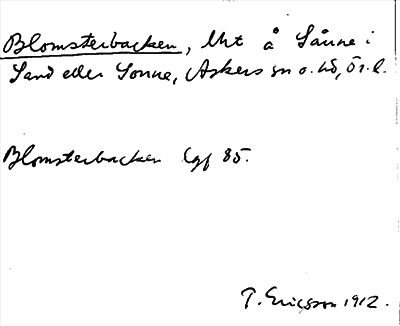 Blomsterbacken, Urt å Sånne i
Sand eller Sonne, Askers sn o. hd, Ör. l.
Blomsterbacken Lgf 85.
T. Ericsson 1912.